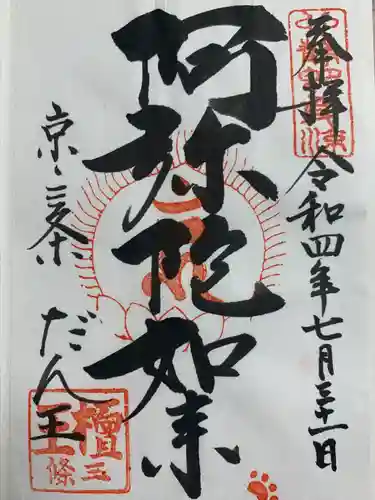 奉拝
令和四年七月三十一日
阿弥陀如来
京・三条
だん王
檀王
三條